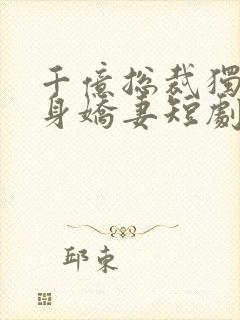 千億總裁獨
身嬌妻短劇
邱東